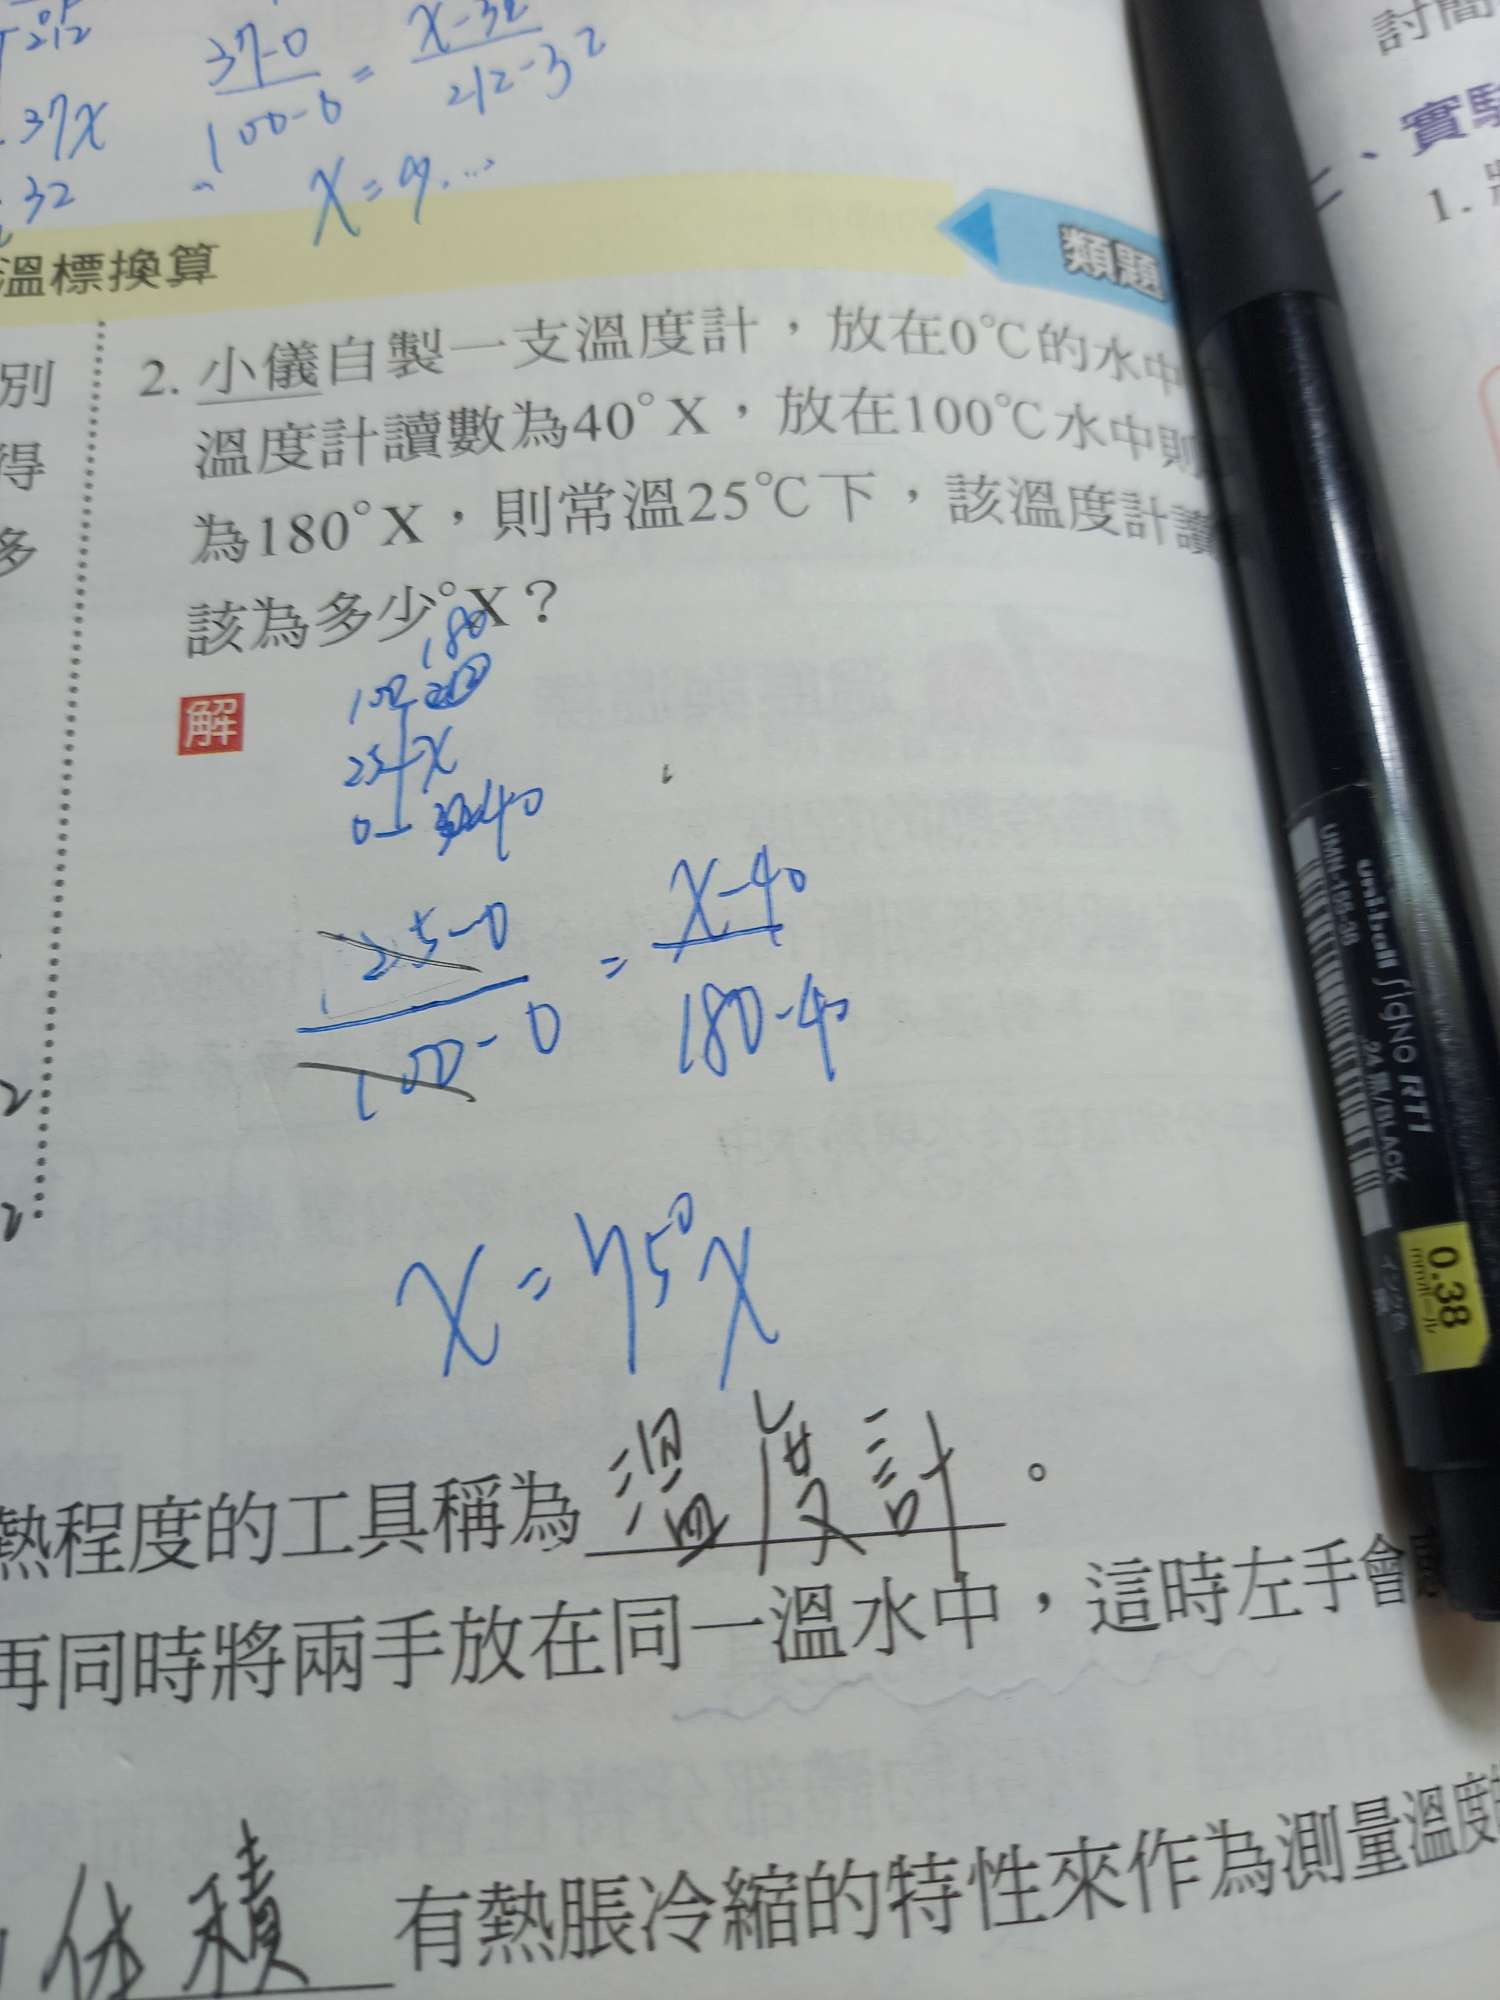 212
37-0 / 100-0 = x-32 / 212-32
37x
32
x=9....
溫標換算
類題
討間
、實驗
1.
別
得
多
2. 小儀自製一支溫度計，放在0℃的水中
溫度計讀數為40°X，放在100℃水中則
為180°X，則常溫25℃下，該溫度計讀
該為多少°X？
解
180
100
25 x
0 40
25-0 / 100-0 = x-40 / 180-40
x=75°X
熱程度的工具稱為溫度計。
再同時將兩手放在同一溫水中，這時左手會
体積有熱脹冷縮的特性來作為測量溫度
uniball Signo RT1
UMN-155-38
24 黑/BLACK
0.38
mmボール
インク色